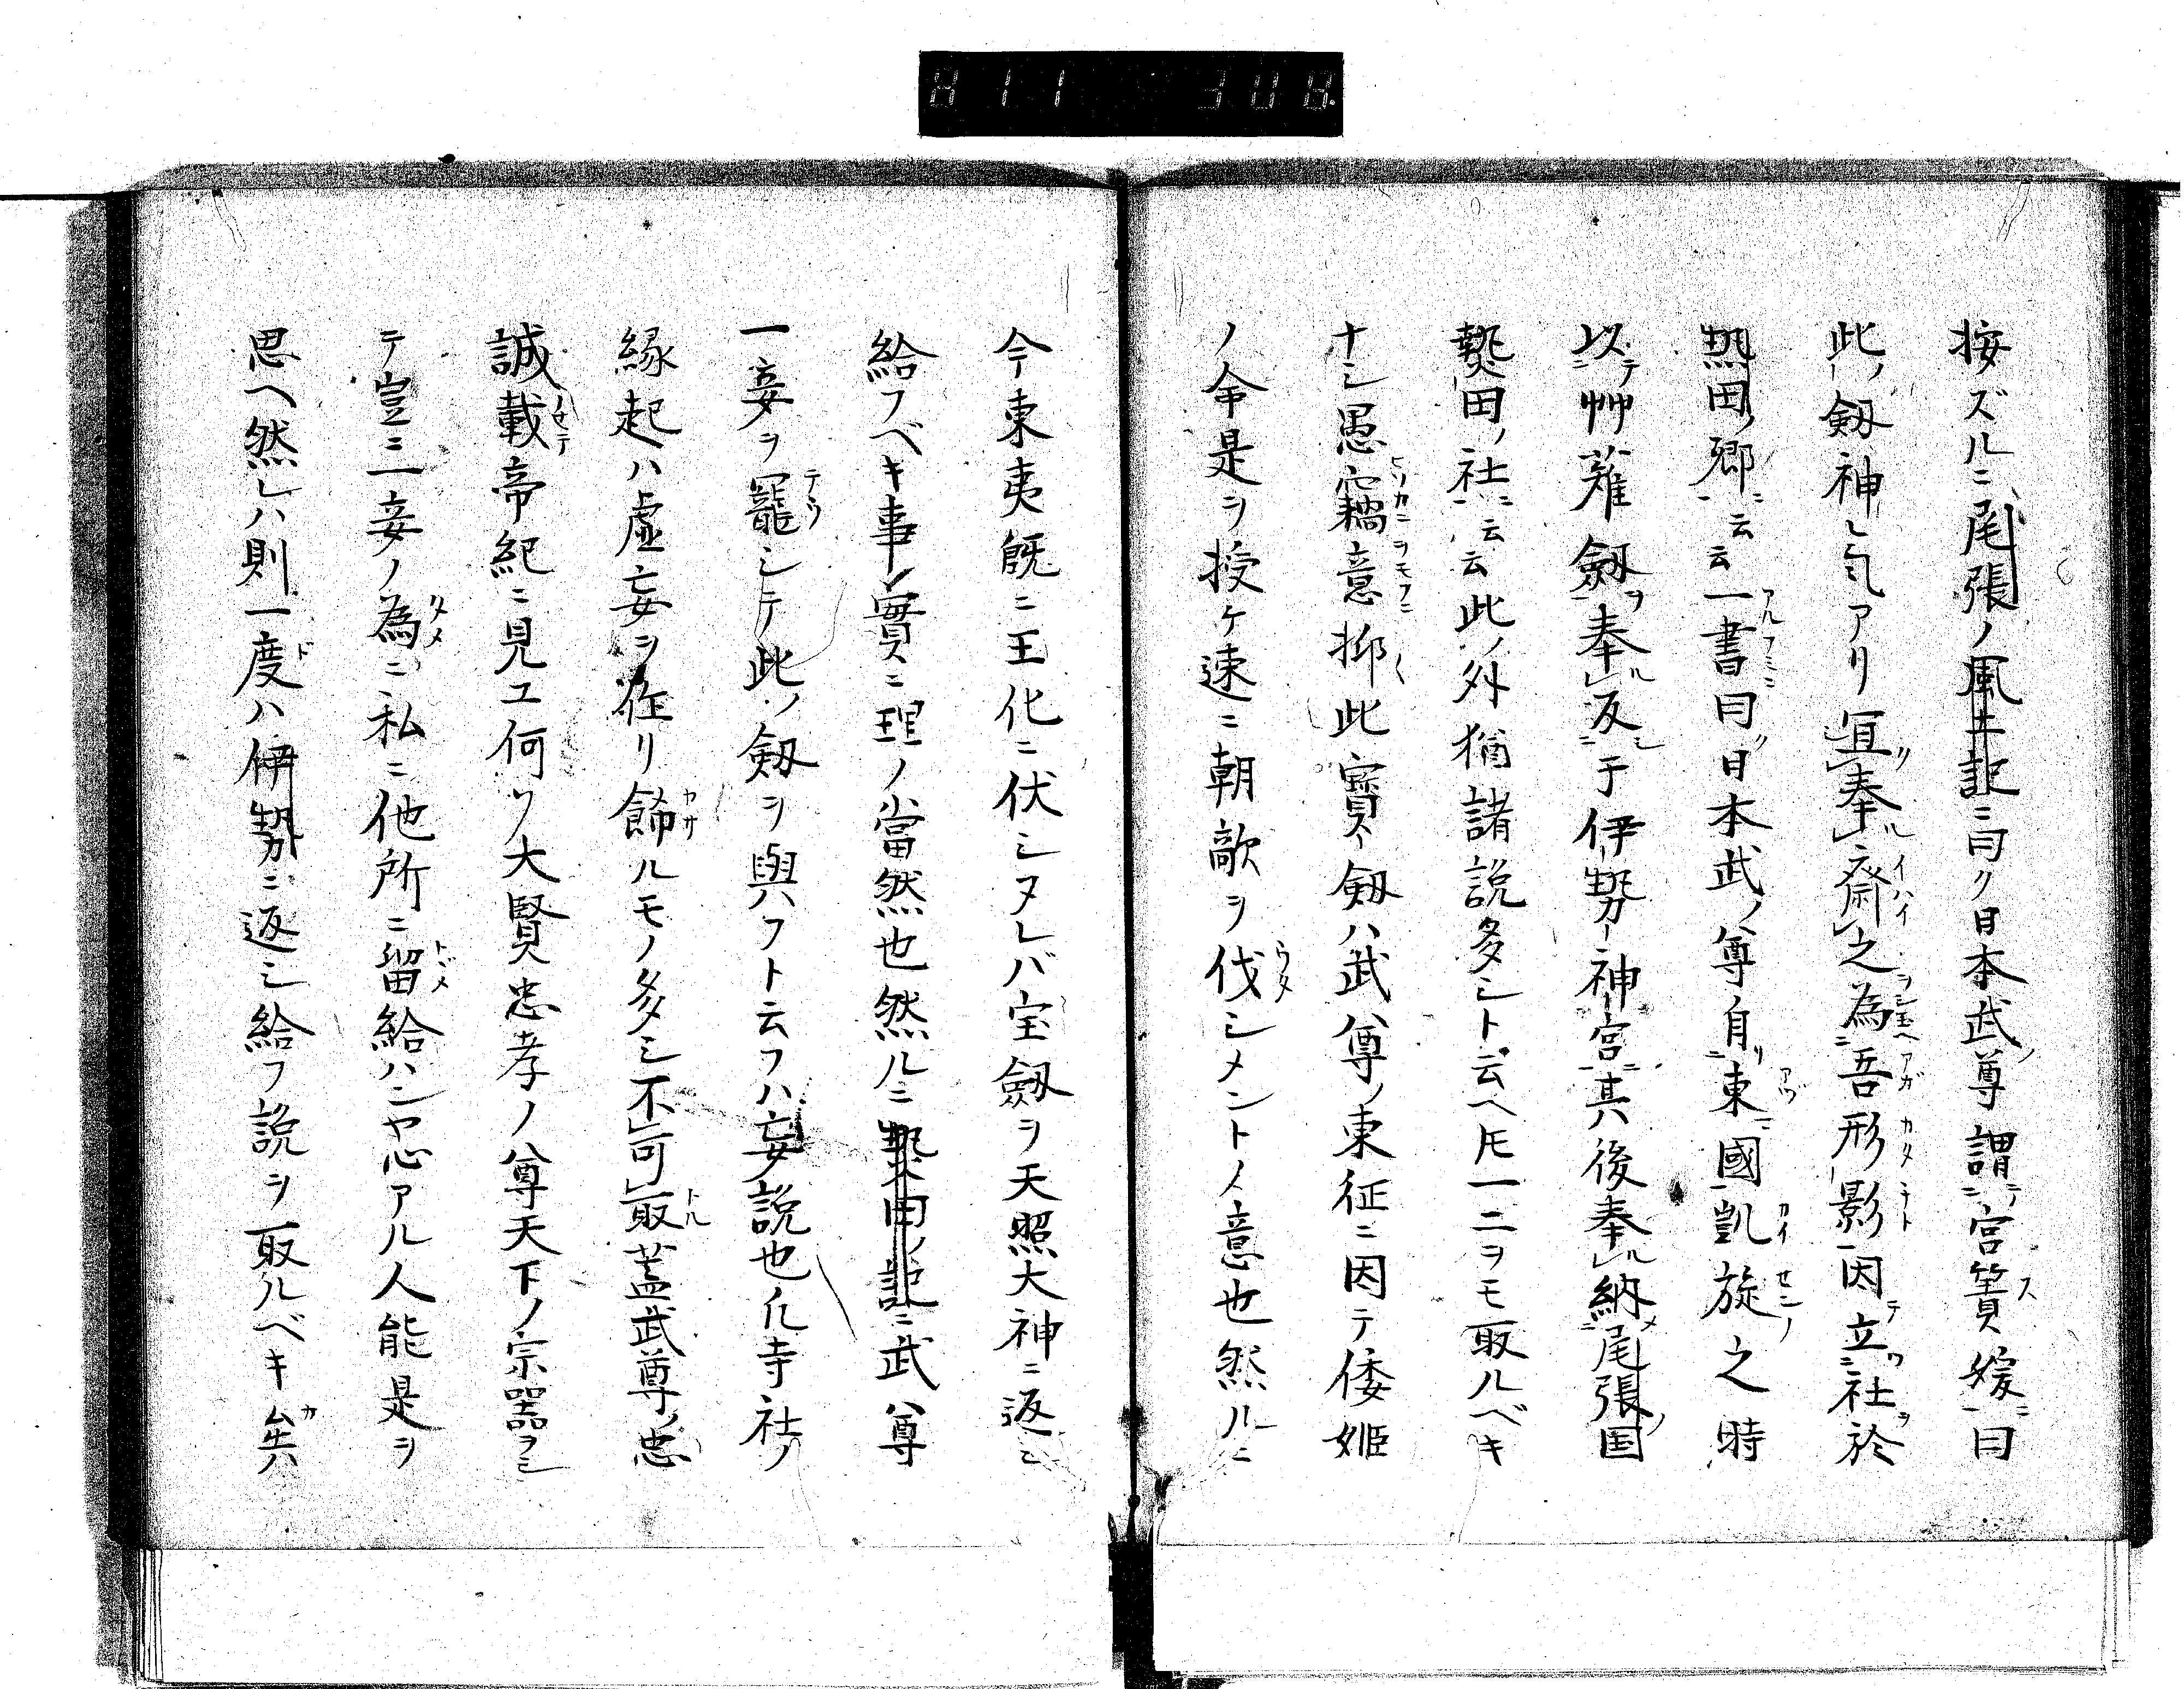 811 308
按ズルニ尾張ノ風土記ニ曰ク日本武ノ尊謂テ宮簀媛ニ曰
此ノ劔神シ気アリ宜ク奉ル齋イハイ之為吾形影因テ立ツ社ヲ於
熱田ノ郷ニ云云一書曰ク日本武ノ尊自リ東國凱旋之時
以テ艸薙劔ヲ奉ル反シ于伊勢ノ神宮ニ其後奉ル納メ尾張ノ国
熱田ノ社ニ云云此ノ外猶諸説多シト云ヘ𪜈一ニヲモ取ルベキ
ナシ愚竊意抑此寳劔ハ武尊ノ東征ニ因テ倭姫
ノ命是ヲ授ケ速ニ朝敵ヲ伐シメントノ意也然ルニ
今東夷既ニ王化ニ伏シヌレバ宝劔ヲ天照大神ニ返シ
給フベキ事實ニ理ノ當然也然ルニ熱田ノ記ニ武尊
一妾ヲ寵シテ此ノ劔ヲ與フト云フハ妄説也凡寺社ノ
縁起ハ虚妄ヲ作リ飾ルモノ多シ不可取蓋武尊ノ忠
誠載帝紀ニ見エ何ゾ大賢忠孝ノ尊天下ノ宗器ヲシ
テ豈ニ一妾ノ為ニ私ニ他所ニ留給ハンヤ心アル人能是ヲ
思ヘ然レハ則一度ハ伊勢ニ返シ給フ説ヲ取ルベキ矣